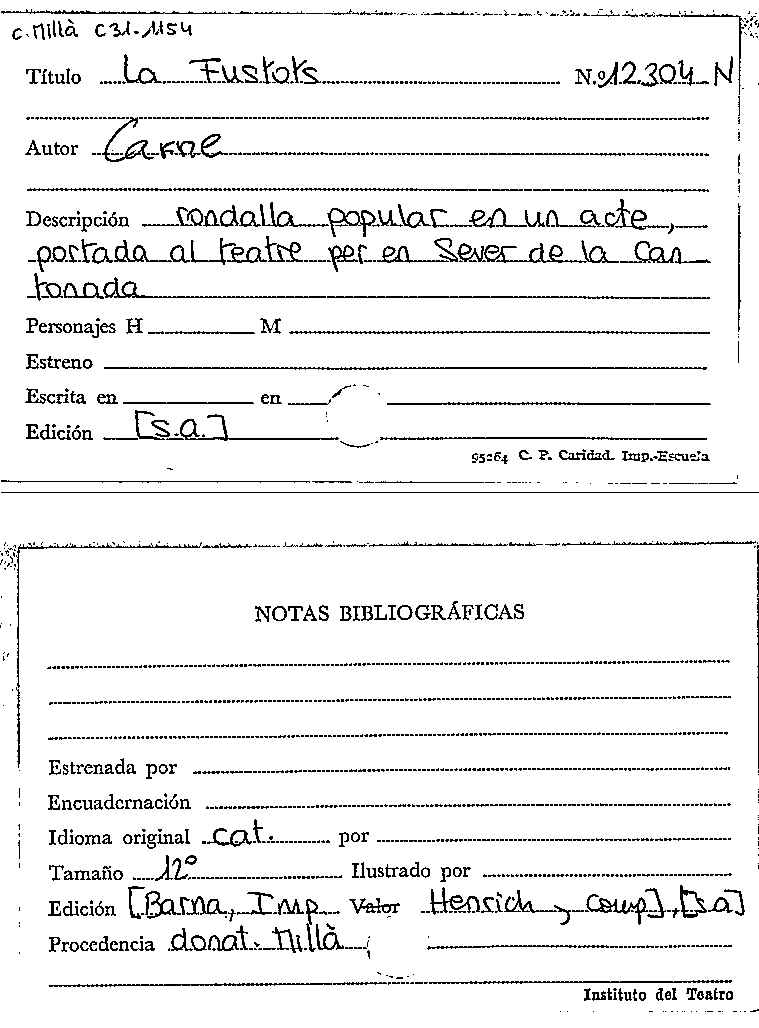 C. Millà C31-1154
Título La Fustots N.º 12.304-N
Autor Carne
Descripción rondalla popular en un acte,
portada al teatre per en Sever de la Can
tonada
Personajes H M
Estreno
Escrita en en
Edición [s.a.]
95264 C. P. Caridad. Imp.-Escuela
NOTAS BIBLIOGRÁFICAS
Estrenada por
Encuadernación
Idioma original cat. por
Tamaño 12º Ilustrado por
Edición [Barna, Imp. Valor Henrich y comp], [s.a]
Procedencia donat. Millà
Instituto del Teatro